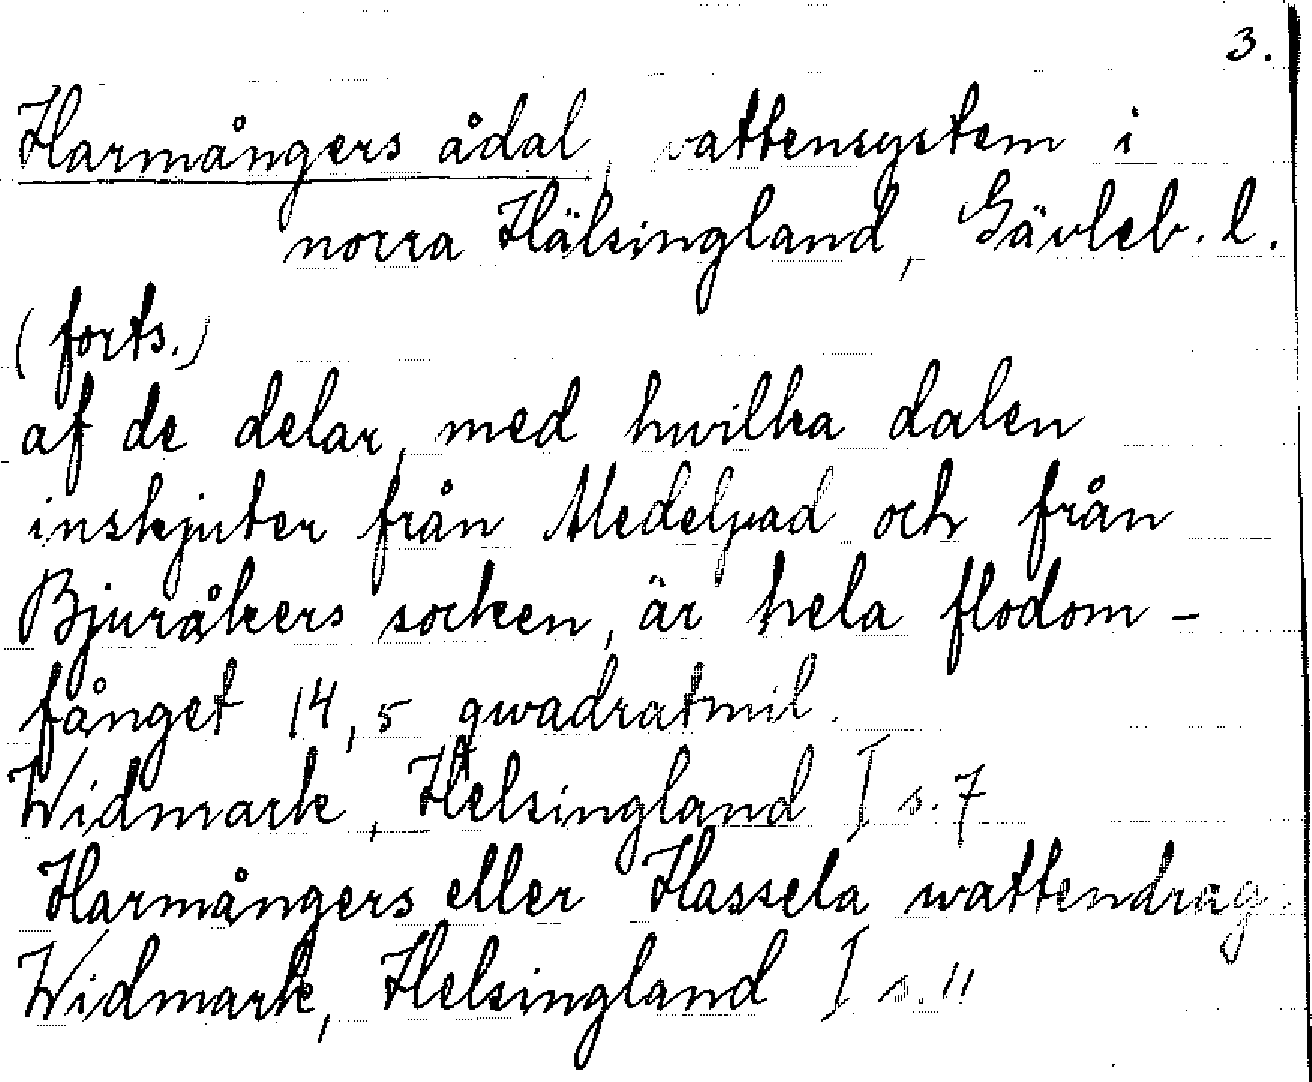 3.
Harmångers ådal, vattensystem i
norra Hälsingland, Gävleb. l.
(forts.)
af de delar, med hwilka dalen
inskjuter från Medelpad och från
Bjuråkers socken, är hela flodom-
fånget 14,5 qwadratmil.
Widmark, Helsingland I s. 7
Harmångers eller Hassela wattendrag
Widmark, Helsingland I s. 11